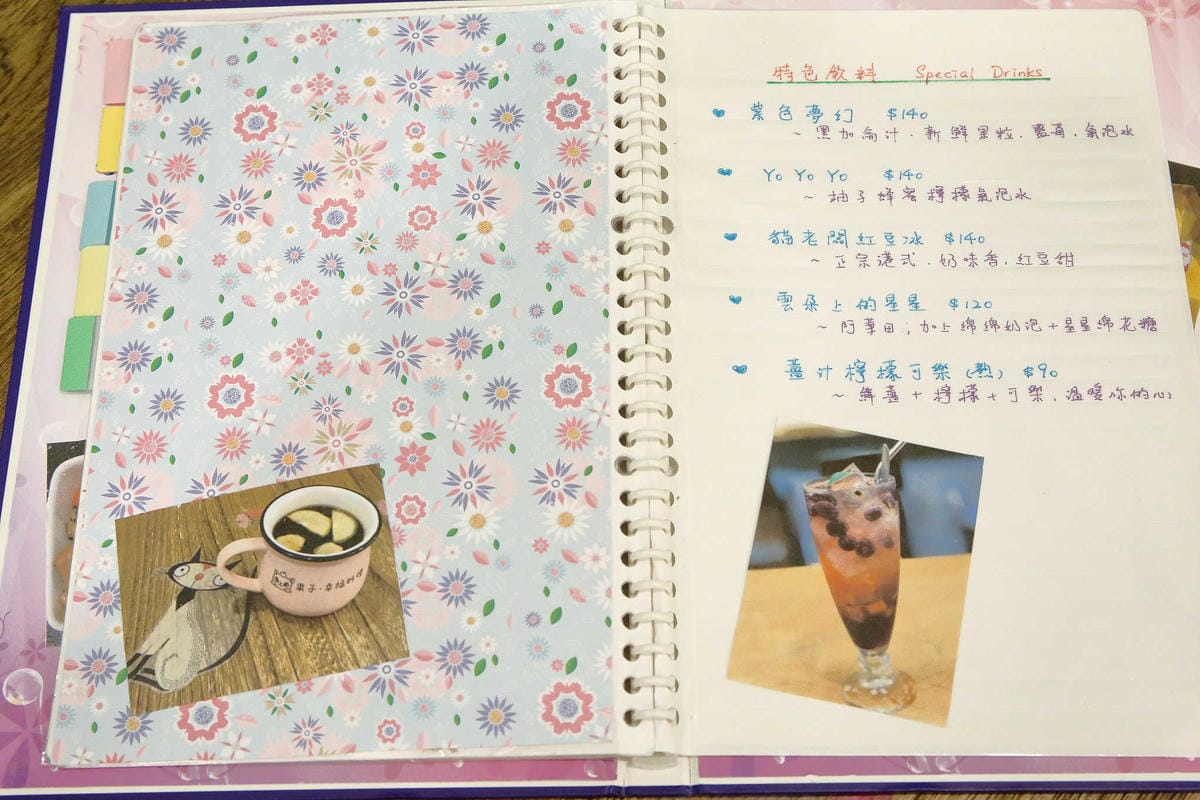 栗子·幸福料理
特色飲料 Special Drinks
紫色夢幻 $140
~ 黑加侖汁.新鮮果粒.藍莓.氣泡水
Yo Yo Yo $140
~ 柚子蜂蜜檸檬氣泡水
貓老闆紅豆冰 $140
~ 正宗港式.奶味香.紅豆甜
雲朵上的星星 $120
~ 阿華田,加上綿綿奶泡+星星綿花糖
薑汁檸檬可樂(熱) $90
~ 鮮薑+檸檬+可樂,溫暖你的心